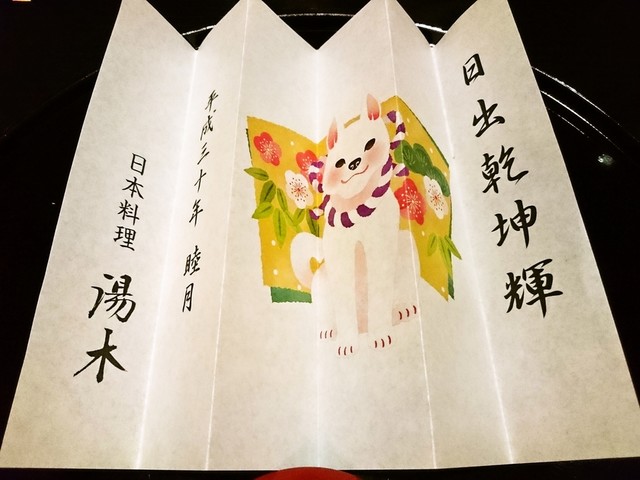 日出乾坤輝
平成三十年 睦月
日本料理 湯木